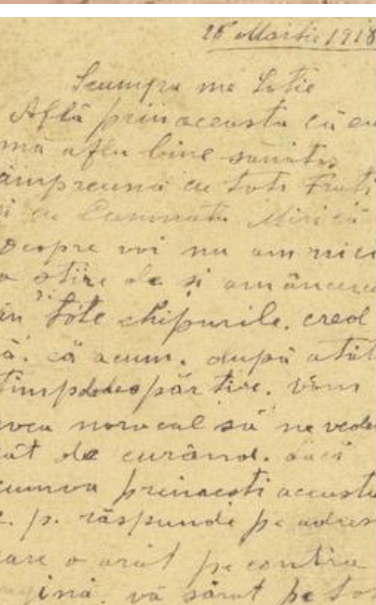 25 Martie 1918
Scumpa me Soție
Află prin aceasta că eu
mă aflu bine sănătos
împreună cu toti Frati
și cu Cumnata
Despre voi nu am nici
o stire de si am încerca
în tote chipurile. cred
că acum. după atât
timp de despărtire. vom
avea norocul să ne vede
cât de curând. dacă
cumva primesti aceasta
c. p. răspunde pe adres
care o arăt pe contra
pagină. vă sărut pe tot